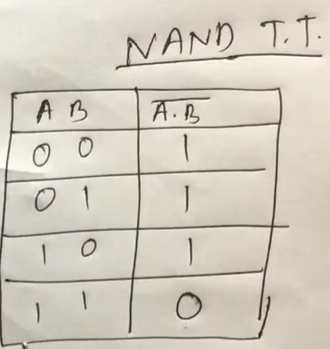 NAND T.T.
A B A̅.̅B̅
0 0 1
0 1 1
1 0 1
1 1 0